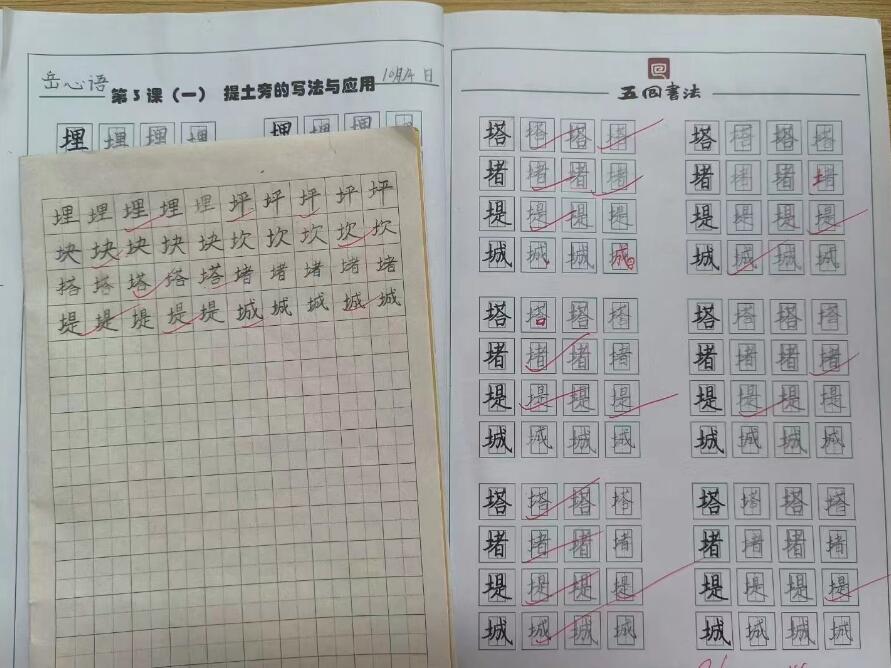 岳心语
第3课（一） 提土旁的写法与应用
10月4日
埋 埋 埋 埋 埋 埋 埋 埋
埋 埋 埋 埋 埋 坪 坪 坪 坪 坪
块 块 块 块 块 坎 坎 坎 坎 坎
塔 塔 塔 塔 塔 堵 堵 堵 堵 堵
堤 堤 堤 堤 堤 城 城 城 城 城
五回书法
塔 塔 塔 塔 塔 塔 塔 塔
堵 堵 堵 堵 堵 堵 堵 堵
堤 堤 堤 堤 堤 堤 堤 堤
城 城 城 城 城 城 城 城
塔 塔 塔 塔 塔 塔 塔 塔
堵 堵 堵 堵 堵 堵 堵 堵
堤 堤 堤 堤 堤 堤 堤 堤
城 城 城 城 城 城 城 城
塔 塔 塔 塔 塔 塔 塔 塔
堵 堵 堵 堵 堵 堵 堵 堵
堤 堤 堤 堤 堤 堤 堤 堤
城 城 城 城 城 城 城 城